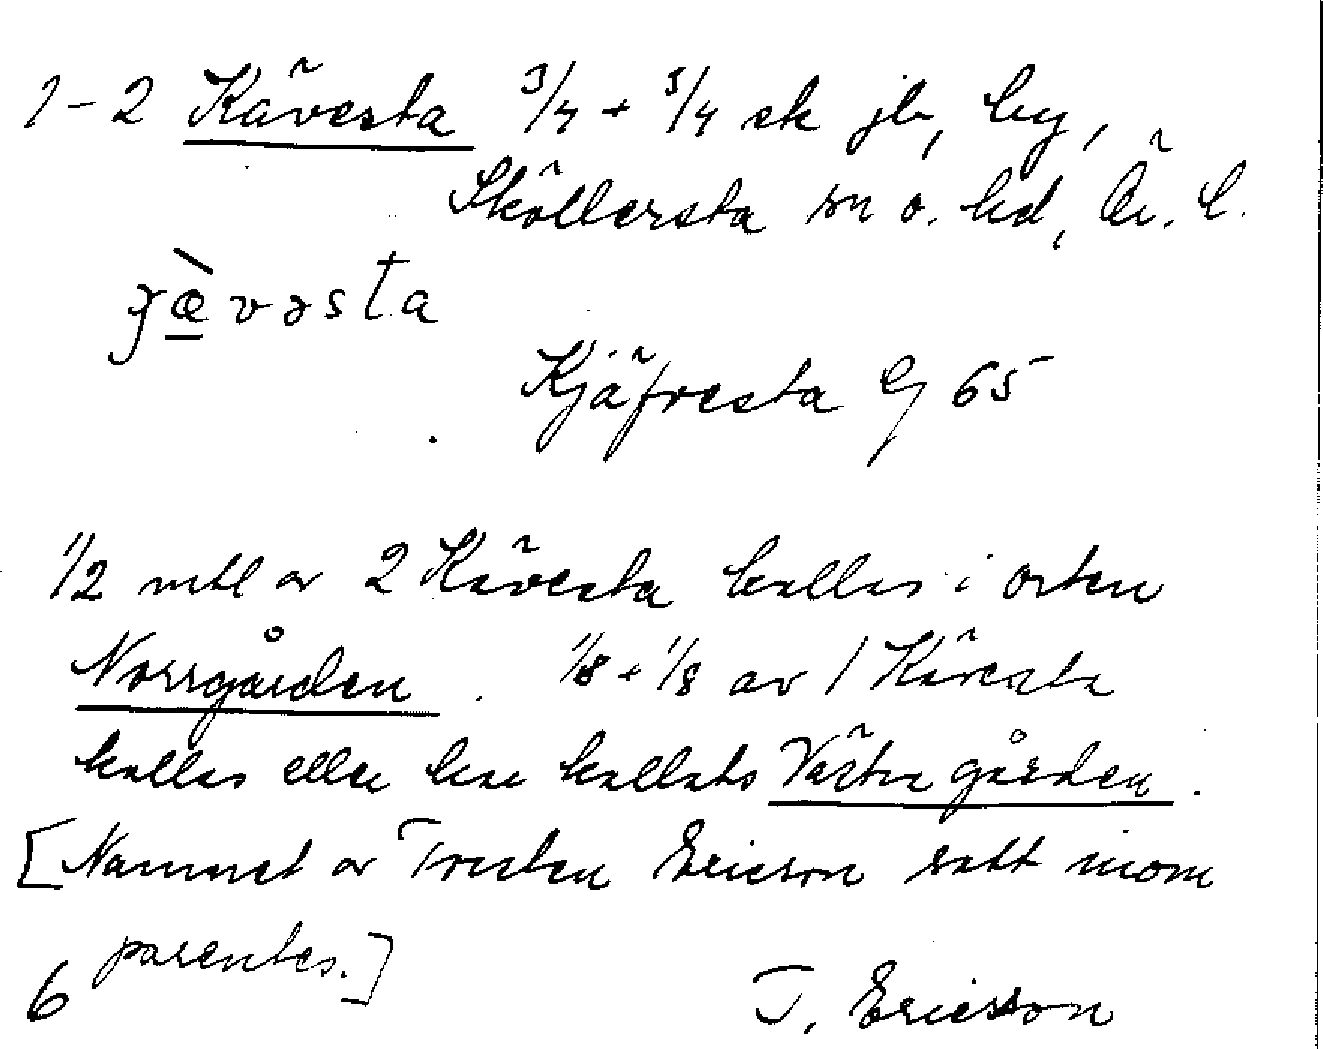 1-2 Kävesta 3/4 + 5/4 sk jb, by,
Sköllersta sn o. hd, Ör. l.
Kjäfvesta Gj 65
1/2 mtl av 2 Kävesta kallas i orten
Norrgården. 1/8 + 1/8 av 1 Kävesta
kallas eller har kallats Västra gården.
[Namnet av Torsten Ericson satt inom
parentes.]
6
T. Ericsson